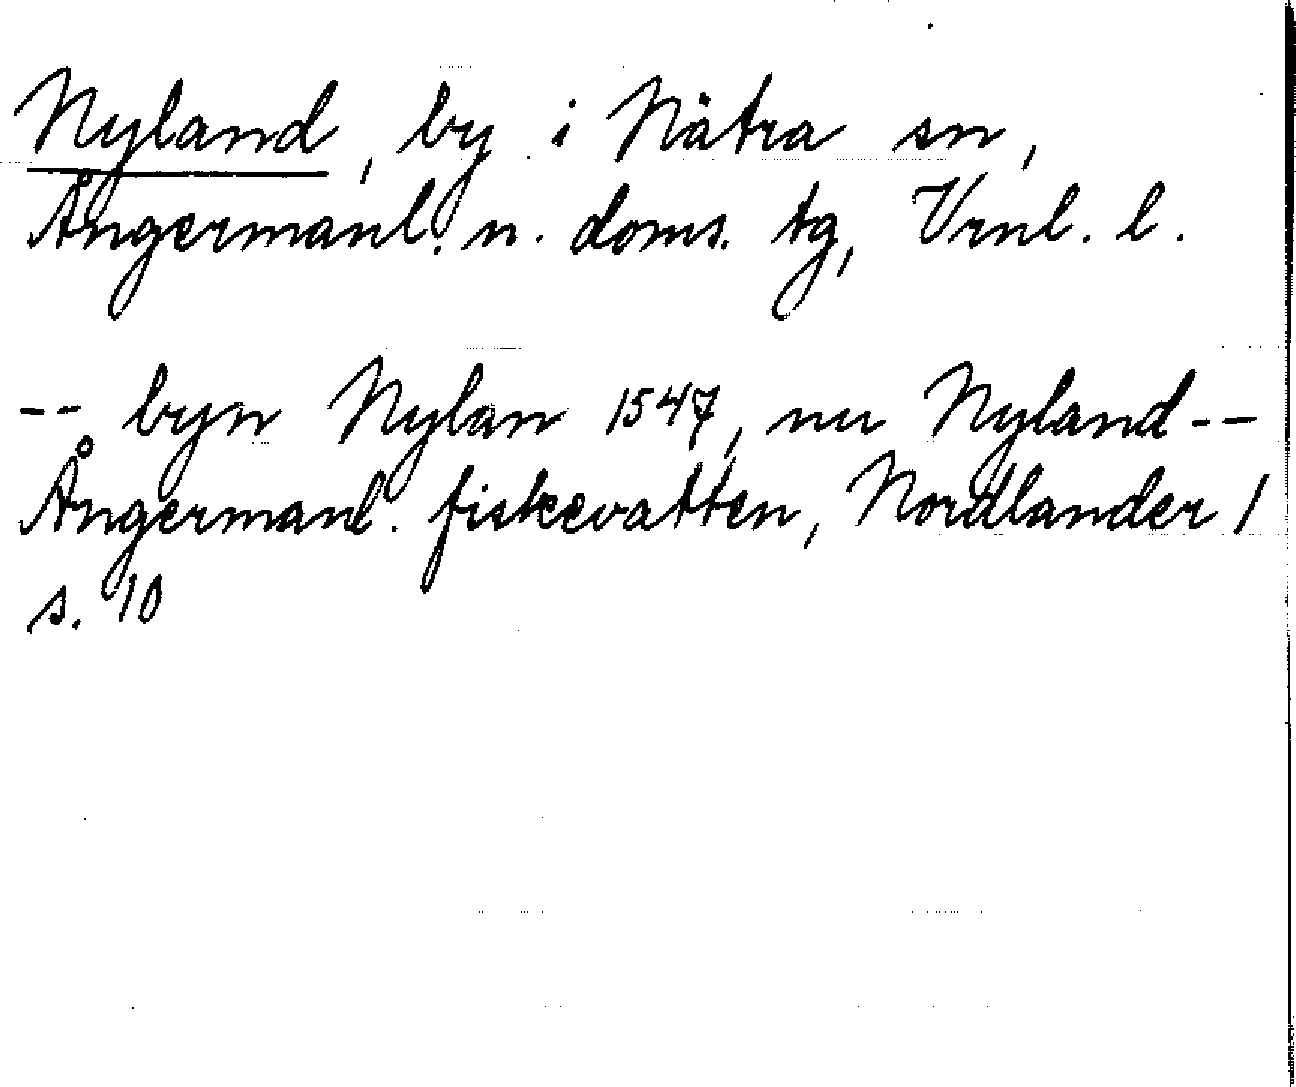 Nyland, by i Nätra sn,
Ångermanl. n. doms. tg, Vrnl. l.
-- byn Nylan 1547, nu Nyland --
Ångermanl. fiskevatten, Nordlander /
s. 10